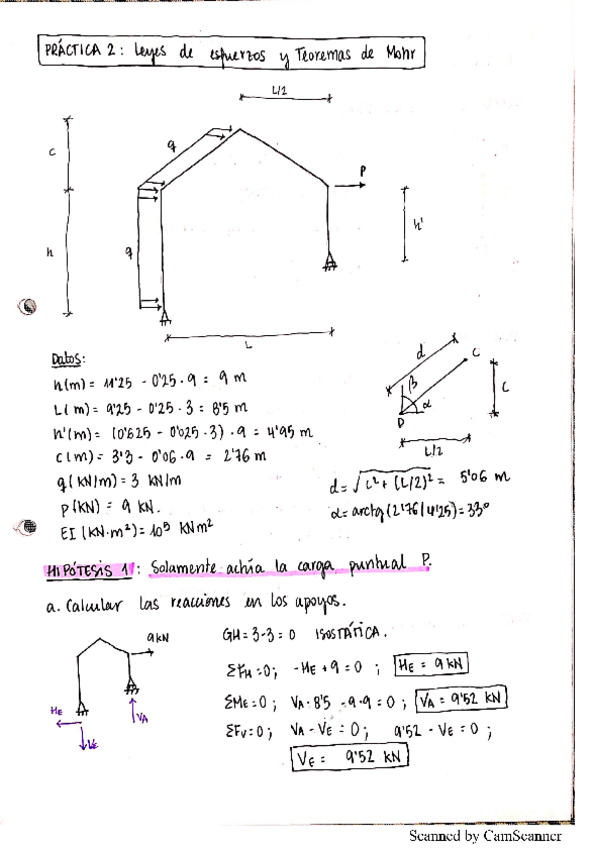 PRÁCTICA 2: Leyes de esfuerzos y Teoremas de Mohr
L/2
c
q
P
h
q
h'
L
Datos:
h(m) = 11'25 - 0'25 · 9 = 9 m
L(m) = 9'25 - 0'25 · 3 = 8'5 m
h'(m) = (0'625 - 0'025 · 3) · 9 = 4'95 m
c(m) = 3'3 - 0'06 · 9 = 2'76 m
q(kN/m) = 3 kN/m
P(kN) = 9 kN.
EI(kN·m²) = 10⁵ kNm²
d
C
β
α
D
c
L/2
d = √(c² + (L/2)²) = 5'06 m
α = arctg(2'76/4'25) = 33º
HIPÓTESIS 1: Solamente actúa la carga puntual P.
a. Calcular las reacciones en los apoyos.
9kN
HE
VE
VA
GH = 3-3 = 0 ISOSTÁTICA.
ΣFH = 0; -HE + 9 = 0; HE = 9 kN
ΣME = 0; VA · 8'5 - 9 · 9 = 0; VA = 9'52 kN
ΣFV = 0; VA - VE = 0; 9'52 - VE = 0;
VE = 9'52 kN
Scanned by CamScanner